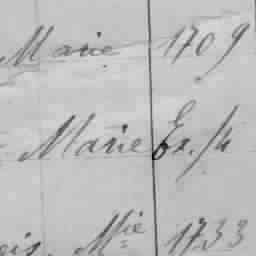 Marie 1709
Marie Ex. /4
eis. Mie 1733